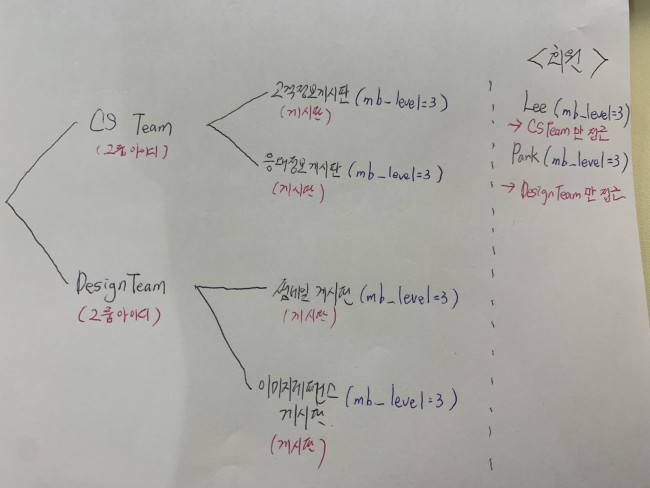 <회원>
고객정보게시판 (mb_level=3)
(게시판)
Lee (mb_level=3)
→ CSTeam 만 접근
CS Team
(그룹아이디)
Park (mb_level=3)
응대정보게시판 (mb_level=3)
(게시판)
→ DesignTeam 만 접근
Design Team
(그룹아이디)
썸네일 게시판 (mb_level=3)
(게시판)
이미지레퍼런스 (mb_level=3)
게시판
(게시판)